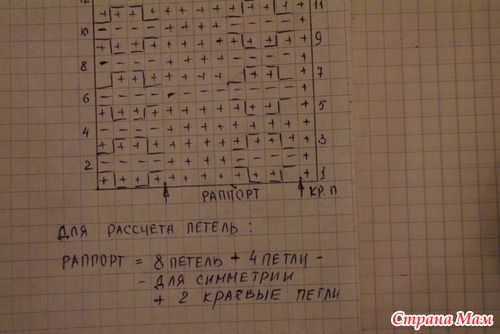 12 11
10 9
8 7
6 5
4 3
2 1
РАППОРТ КР. П
ДЛЯ РАССЧЕТА ПЕТЕЛЬ :
РАППОРТ = 8 ПЕТЕЛЬ + 4 ПЕТЛИ -
- ДЛЯ СИММЕТРИИ
+ 2 КРАЕВЫЕ ПЕТЛИ
Страна Мам